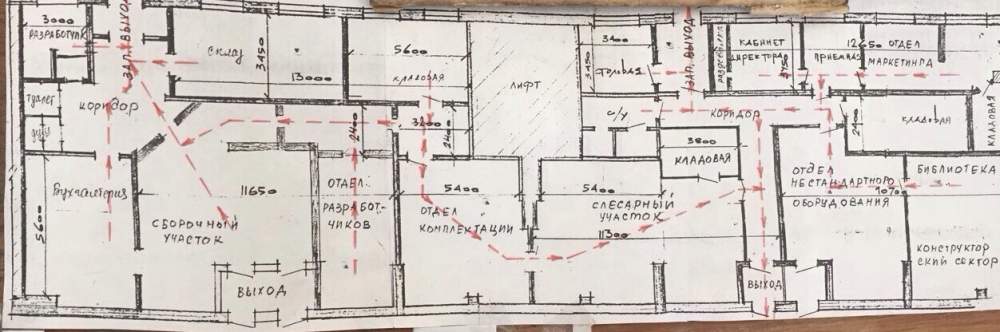 3000
РАЗРАБОТЧИК
ЗАП. ВЫХОД
СКЛАД
3450
13000
5600
КЛАДОВАЯ
ЛИФТ
3400
3450
СТОЛОВАЯ
ЗАП. ВЫХОД
РАЗДЕВАЛКА
КАБИНЕТ
ДИРЕКТОРА
ПРИЕМНАЯ
12650 ОТДЕЛ
МАРКЕТИНГА
ТУАЛЕТ
ДУШ
КОРИДОР
2400
3200
2400
С/У
КОРИДОР
3800
КЛАДОВАЯ
2400
КЛАДОВАЯ
КЛАДОВАЯ
БУХГАЛТЕРИЯ
5600
11650
СБОРОЧНЫЙ
УЧАСТОК
ВЫХОД
ОТДЕЛ
РАЗРАБОТ-
ЧИКОВ
5400
ОТДЕЛ
КОМПЛЕКТАЦИИ
5400
СЛЕСАРНЫЙ
УЧАСТОК
11300
ВЫХОД
ОТДЕЛ
НЕСТАНДАРТНОГО
ОБОРУДОВАНИЯ
10700
БИБЛИОТЕКА
КОНСТРУКТОР
СКИЙ СЕКТОР